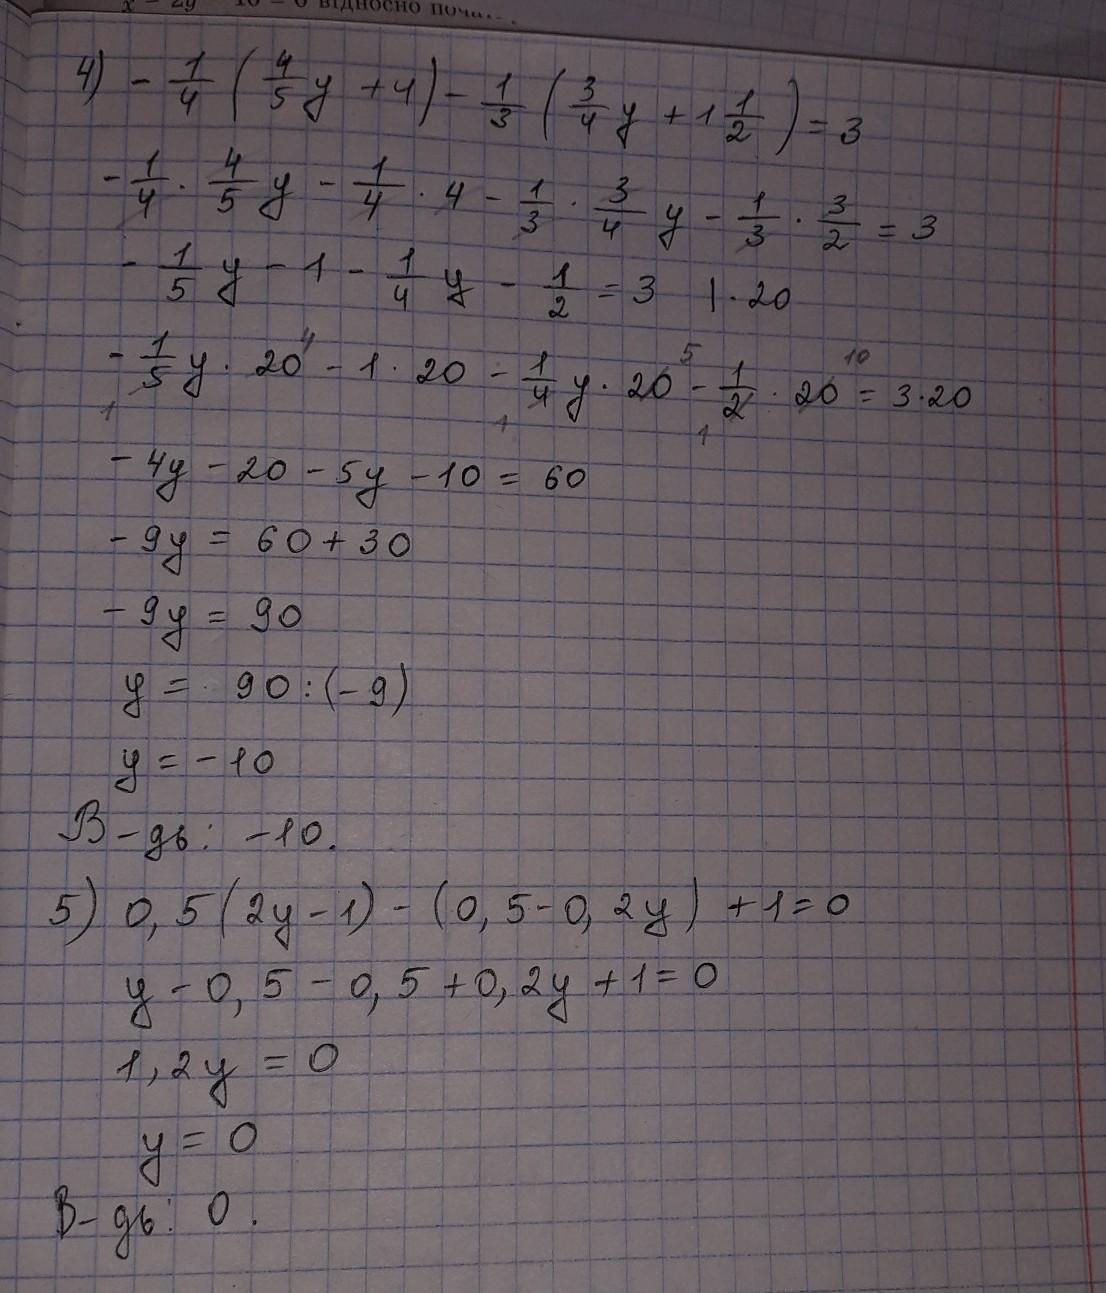 x − 2y 10 = 0 відносно поча
4) - 1/4 ( 4/5 y + 4) - 1/3 ( 3/4 y + 1 1/2 ) = 3
- 1/4 · 4/5 y - 1/4 · 4 - 1/3 · 3/4 y - 1/3 · 3/2 = 3
- 1/5 y - 1 - 1/4 y - 1/2 = 3 | · 20
- 1/5 y · 20 4 - 1 · 20 - 1/4 y · 20 5 - 1/2 · 20 10 = 3 · 20
1 1 1
- 4y - 20 - 5y - 10 = 60
- 9y = 60 + 30
- 9y = 90
y = 90 : (-9)
y = -10
В-дь: -10.
5) 0,5(2y - 1) - (0,5 - 0,2y) + 1 = 0
y - 0,5 - 0,5 + 0,2y + 1 = 0
1,2y = 0
y = 0
В-дь: 0.